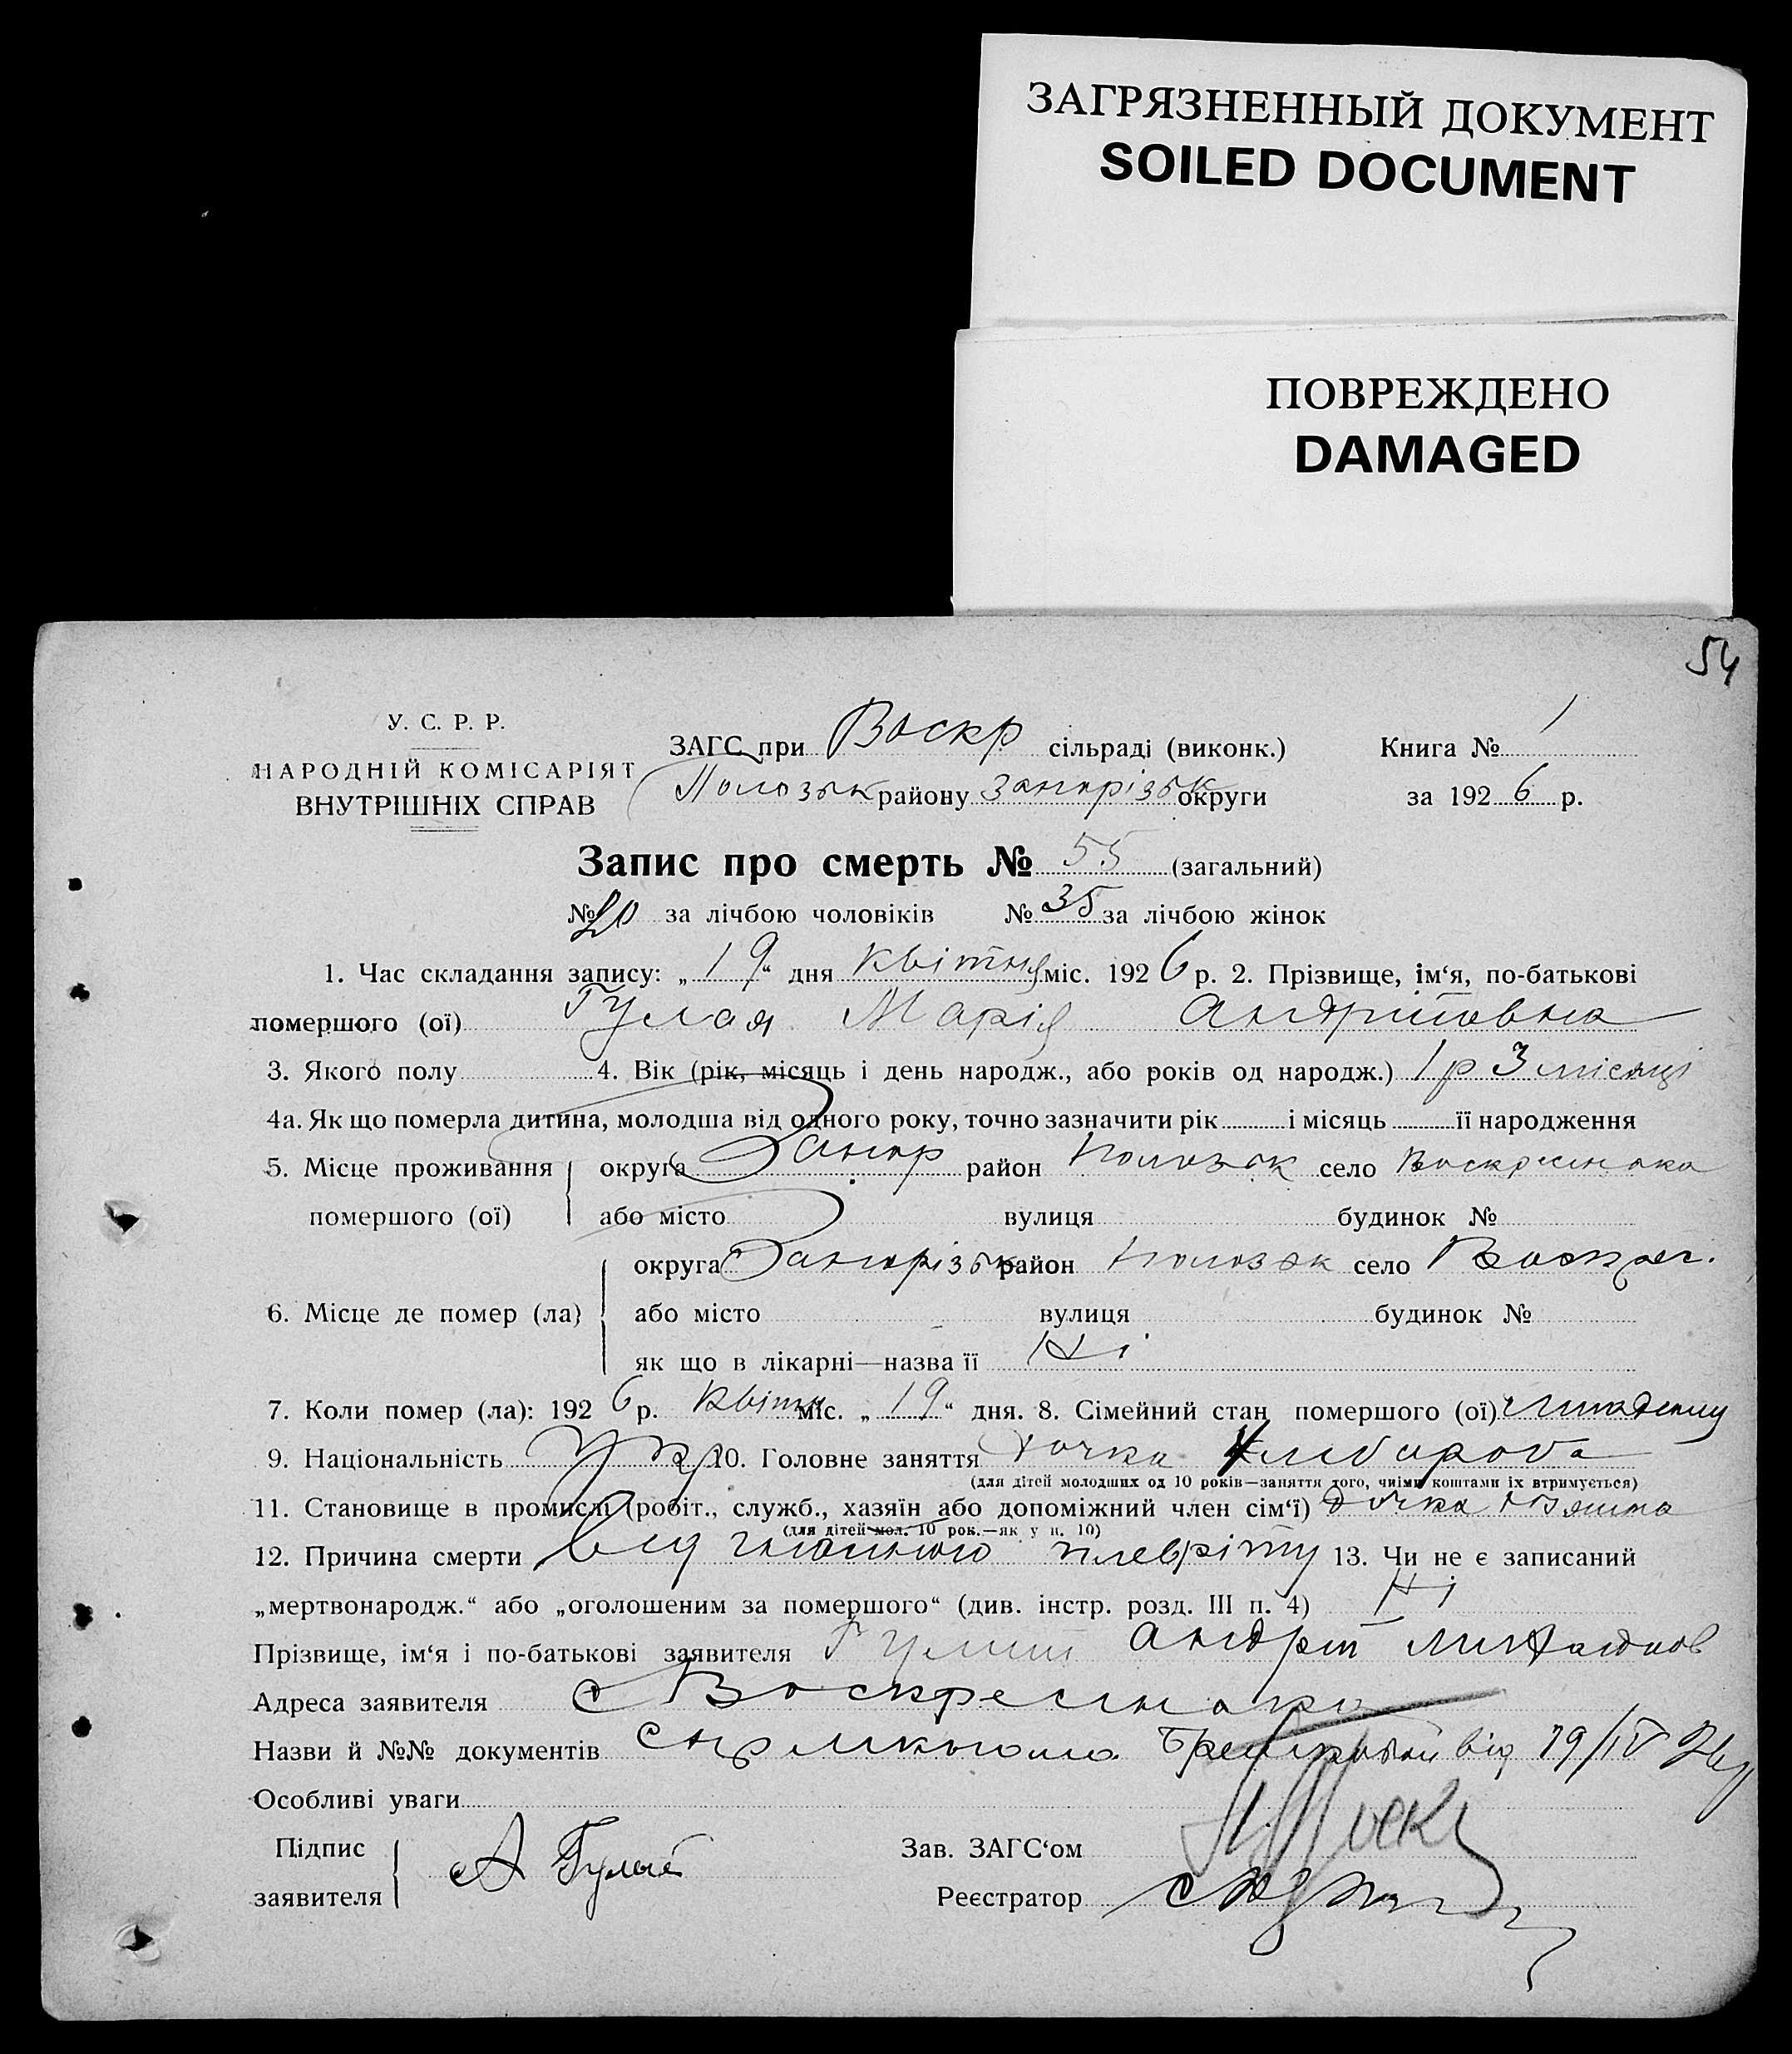 ЗАГРЯЗНЕННЫЙ ДОКУМЕНТ
SOILED DOCUMENT
ПОВРЕЖДЕНО
DAMAGED
54
У. С. Р. Р.
НАРОДНІЙ КОМІСАРІЯТ
ВНУТРІШНІХ СПРАВ
ЗАГС при Воскр сільраді (виконк.) Книга № 1
Полозьк району Запорізьк округи за 1926 р.
Запис про смерть № 55 (загальний)
№ 20 за лічбою чоловіків № 35 за лічбою жінок
1. Час складання запису: „19“ дня квітня міс. 1926 р. 2. Прізвище, ім‘я, по-батькові
помершого (ої) Гулая Марія Андріївна
3. Якого полу 4. Вік (рік, місяць і день народж., або років од народж.) 1 р 3 місяці
4а. Як що померла дитина, молодша від одного року, точно зазначити рік і місяць її народження
5. Місце проживання помершого (ої) округа Запор район Полозьк село Воскресенка
або місто вулиця будинок №
6. Місце де помер (ла) округа Запорізьк район Полозьк село Воскрес.
або місто вулиця будинок №
як що в лікарні—назва її Ні
7. Коли помер (ла): 1926 р. Квітн міс. „19“ дня. 8. Сімейний стан помершого (ої)
9. Національність Укр 10. Головне заняття дочка хлібороба
(для дітей молодших од 10 років—заняття того, чиїми коштами їх втримується)
11. Становище в промислі (робіт., служб., хазяїн або допоміжний член сім‘ї) дочка
(для дітей мол. 10 рок.—як у п. 10)
12. Причина смерти від гнійного плевріту 13. Чи не є записаний
„мертвонародж.“ або „оголошеним за помершого“ (див. інстр. розд. III п. 4) Ні
Прізвище, ім‘я і по-батькові заявителя Гулий Андрій
Адреса заявителя с Воскресенка
Назви й №№ документів від 19/IV
Особливі уваги
Підпис заявителя А Гулый
Зав. ЗАГС‘ом
Реєстратор